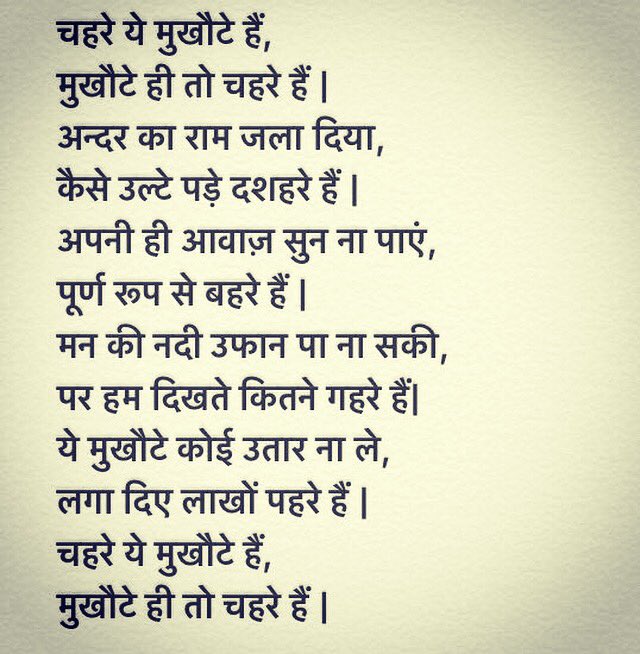 चहरे ये मुखौटे हैं,
मुखौटे ही तो चहरे हैं |
अन्दर का राम जला दिया,
कैसे उल्टे पड़े दशहरे हैं |
अपनी ही आवाज़ सुन ना पाएं,
पूर्ण रूप से बहरे हैं |
मन की नदी उफान पा ना सकी,
पर हम दिखते कितने गहरे हैं|
ये मुखौटे कोई उतार ना ले,
लगा दिए लाखों पहरे हैं |
चहरे ये मुखौटे हैं,
मुखौटे ही तो चहरे हैं |